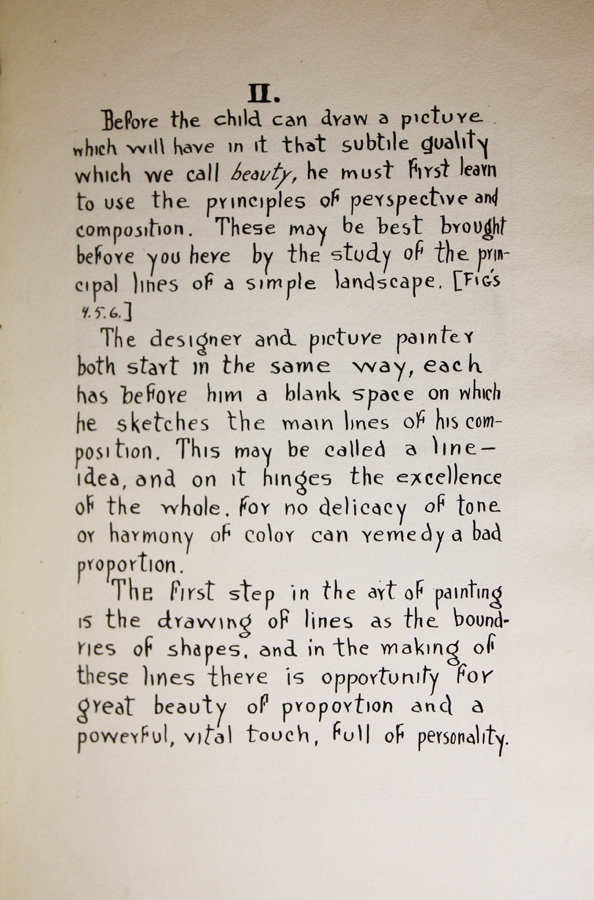 II.
Before the child can draw a picture
which will have in it that subtile quality
which we call beauty, he must first learn
to use the principles of perspective and
composition. These may be best brought
before you here by the study of the prin-
cipal lines of a simple landscape. [Fig's
4.5.6.]
The designer and picture painter
both start in the same way, each
has before him a blank space on which
he sketches the main lines of his com-
position. This may be called a line-
idea, and on it hinges the excellence
of the whole. For no delicacy of tone
or harmony of color can remedy a bad
proportion.
The first step in the art of painting
is the drawing of lines as the bound-
ries of shapes, and in the making of
these lines there is opportunity for
great beauty of proportion and a
powerful, vital touch, full of personality.